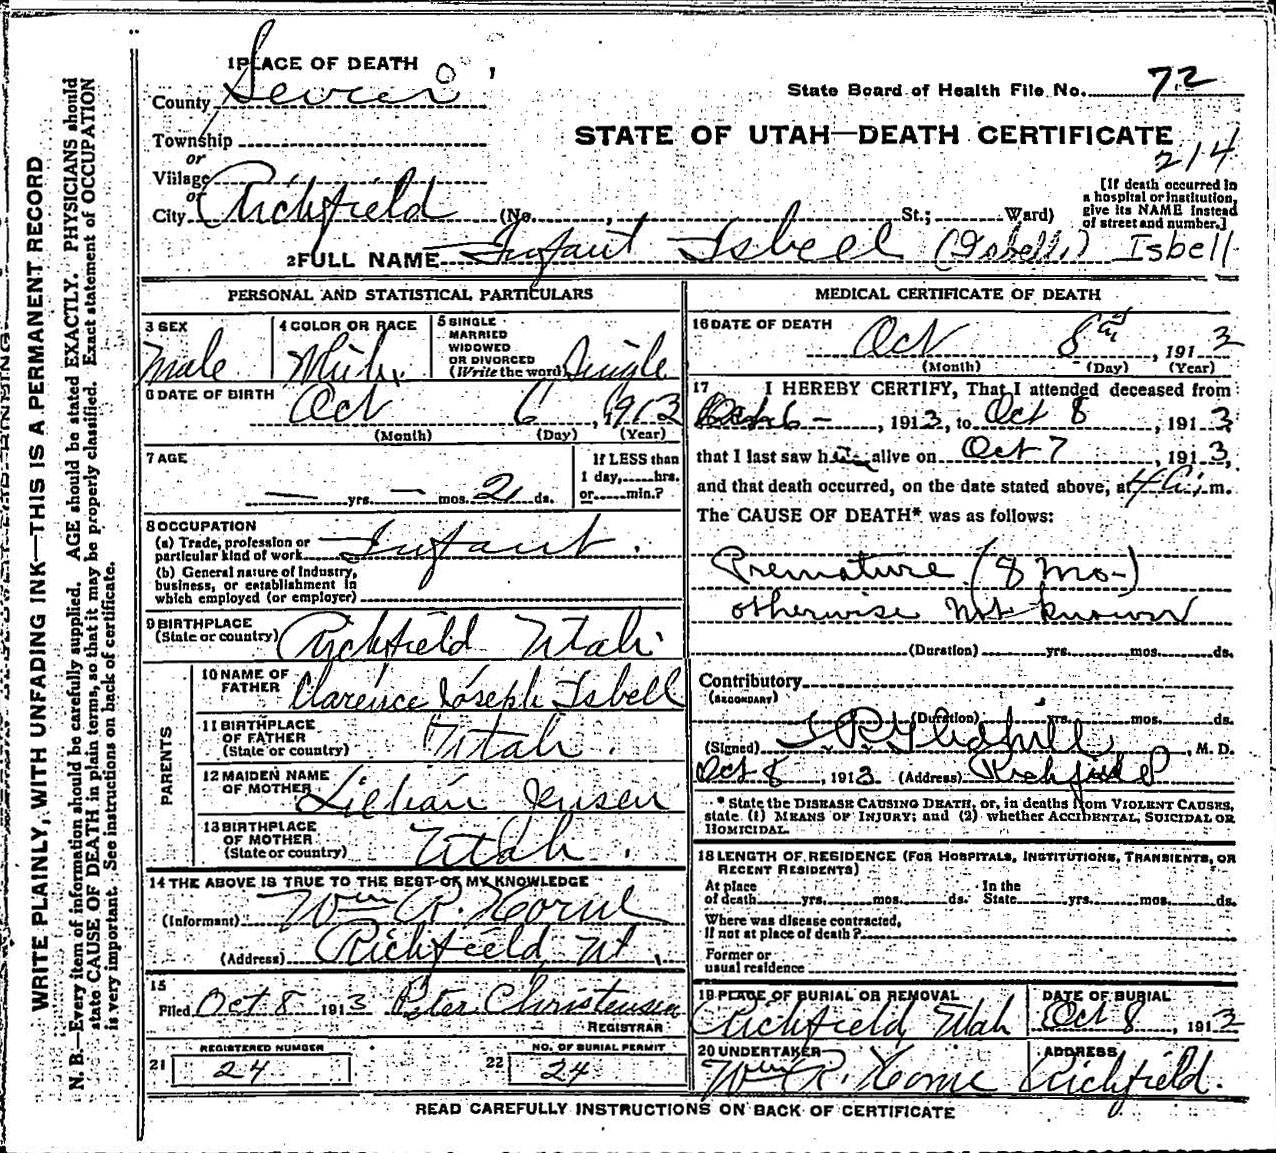 1 PLACE OF DEATH
County Sevier
State Board of Health File No. 72
Township
STATE OF UTAH—DEATH CERTIFICATE
214
or
Village
or
City Richfield (No. , St.; Ward)
[If death occurred in
a hospital or institution,
give its NAME instead
of street and number.]
2 FULL NAME Infant Isbell (Isbell) Isbell
PERSONAL AND STATISTICAL PARTICULARS
3 SEX
Male
4 COLOR OR RACE
White
5 SINGLE
MARRIED
WIDOWED
OR DIVORCED
(Write the word) Single
6 DATE OF BIRTH
Oct 6, 1913
(Month) (Day) (Year)
7 AGE
— yrs. — mos. 2 ds.
If LESS than
1 day, hrs.
or min.?
8 OCCUPATION
(a) Trade, profession or
particular kind of work Infant.
(b) General nature of Industry,
business, or establishment in
which employed (or employer)
9 BIRTHPLACE
(State or country) Richfield Utah.
PARENTS
10 NAME OF
FATHER Clarence Joseph Isbell
11 BIRTHPLACE
OF FATHER
(State or country) Utah.
12 MAIDEN NAME
OF MOTHER Lillian Jensen
13 BIRTHPLACE
OF MOTHER
(State or country) Utah.
14 THE ABOVE IS TRUE TO THE BEST OF MY KNOWLEDGE
(Informant) Wm R. Horne
(Address) Richfield, Ut.
15
Filed Oct 8 1913 Peter Christensen
REGISTRAR
REGISTERED NUMBER
21 24
NO. OF BURIAL PERMIT
22 24
MEDICAL CERTIFICATE OF DEATH
16 DATE OF DEATH
Oct 8th, 1913
(Month) (Day) (Year)
17 I HEREBY CERTIFY, That I attended deceased from
Oct 6 —, 1913, to Oct 8, 1913,
that I last saw him alive on Oct 7, 1913,
and that death occurred, on the date stated above, at 4 a. m.
The CAUSE OF DEATH* was as follows:
Premature (8 mo-)
otherwise not known
(Duration) yrs. mos. ds.
Contributory
(SECONDARY)
(Duration) yrs. mos. ds.
(Signed) Gledhill, M. D.
Oct 8, 1913 (Address) Richfield
* State the DISEASE CAUSING DEATH, or, in deaths from VIOLENT CAUSES,
state (1) MEANS OF INJURY; and (2) whether ACCIDENTAL, SUICIDAL OR
HOMICIDAL.
18 LENGTH OF RESIDENCE (FOR HOSPITALS, INSTITUTIONS, TRANSIENTS, OR
RECENT RESIDENTS)
At place In the
of death yrs. mos. ds. State yrs. mos. ds.
Where was disease contracted,
If not at place of death?
Former or
usual residence
19 PLACE OF BURIAL OR REMOVAL
Richfield, Utah
DATE OF BURIAL
Oct 8, 1913
20 UNDERTAKER
Wm R. Horne
ADDRESS
Richfield.
READ CAREFULLY INSTRUCTIONS ON BACK OF CERTIFICATE
WRITE PLAINLY, WITH UNFADING INK—THIS IS A PERMANENT RECORD
N. B.—Every item of information should be carefully supplied. AGE should be stated EXACTLY. PHYSICIANS should
state CAUSE OF DEATH in plain terms, so that it may be properly classified. Exact statement of OCCUPATION
is very important. See instructions on back of certificate.